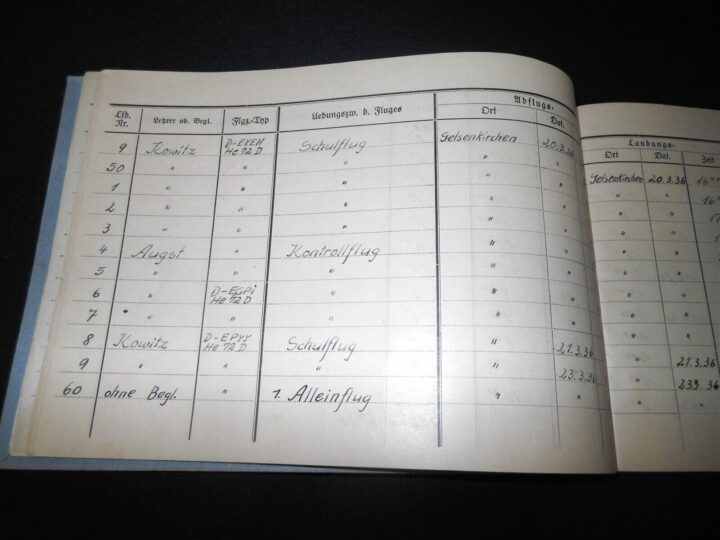 Abflugs- Landungs-
Lfd. Nr. Lehrer od. Begl. Flgz.-Typ Uebungszw. d. Fluges Ort Dat. Ort Dat. Zeit
9 Kowitz D-EXEN He 72 D Schulflug Gelsenkirchen 20.3.36 Gelsenkirchen 20.3.36
50 " " " " " " "
1 " " " " " " "
2 " " " " " " "
3 " " " " " " "
4 Augst " Kontrollflug " " " "
5 " " " " " " "
6 " D-EGPi He 72 D " " " " "
7 " " " " " " "
8 Kowitz D-EPYY He 72 D Schulflug " 21.3.36 " 21.3.36
9 " " " " 23.3.36 " 23.3.36
60 ohne Begl. " 1. Alleinflug " " " "